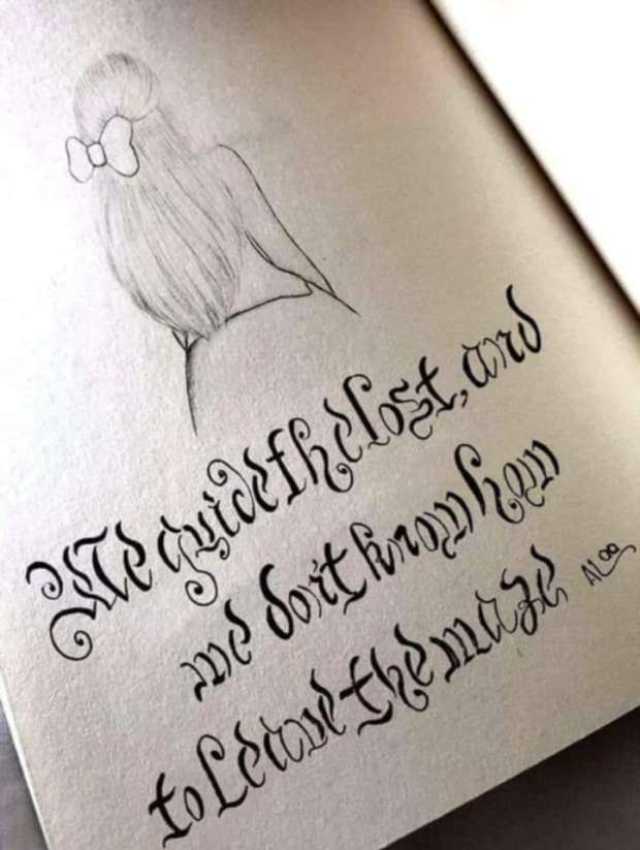 We guide the lost, and
we don't know how
to Leave the maze